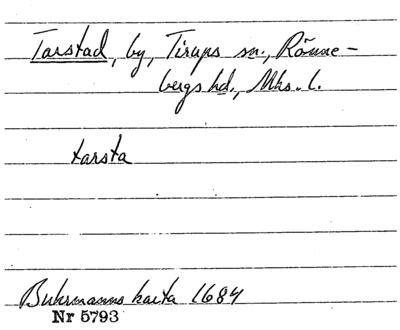 Tarstad, by, Tirups sn., Rönne-
bergs hd., Mhs. l.
tarsta
Buhrmanns karta 1684
Nr 5793